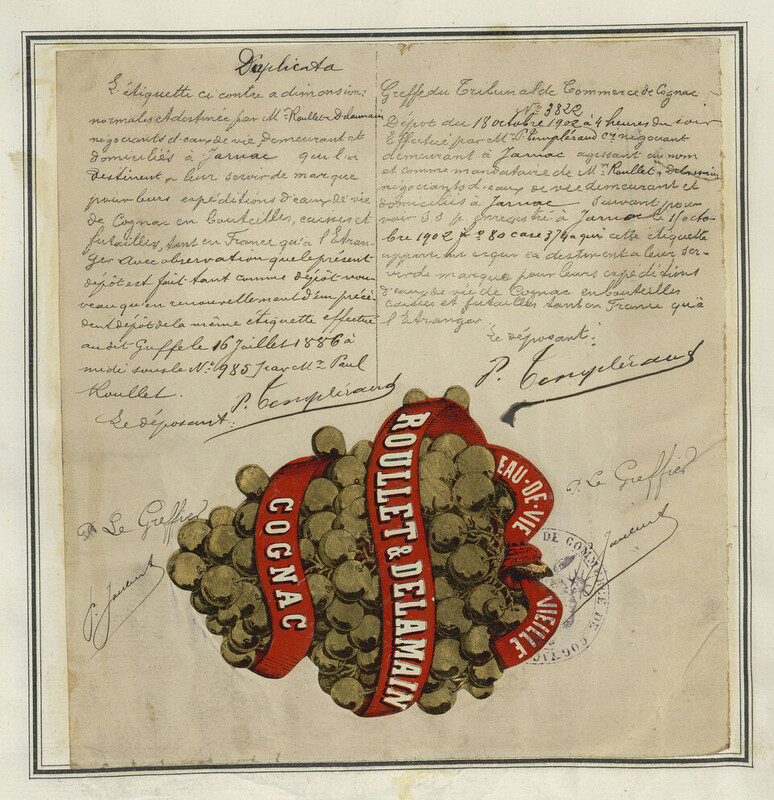 Duplicata
L'étiquette ci contre a dimensions
normales et destinée par Mrs Roullet & Delamain
négociants d'eaux de vie demeurant et
domiciliés à Jarnac qui la
destinent à leur servir de marque
pour leurs expéditions d'eaux de vie
de Cognac en bouteilles, caisses et
futailles, tant en France qu'à l'Etran-
ger. Avec observation que le présent
dépôt est fait tant comme dépôt nou-
veau qu'en renouvellement d'un précé-
dent dépôt de la même étiquette effectué
au dit Greffe le 16 Juillet 1886 à
midi sous le No 985 par Mr Paul
Roullet.
Le déposant:
P. Templéraud
Greffe du Tribunal de Commerce de Cognac
No 3822
Dépôt du 18 octobre 1902 à 4 heures du soir
Effectué par Mr P. Templéraud négociant
demeurant à Jarnac agissant au nom
et comme mandataire de Mrs Roullet & Delamain
négociants d'eaux de vie demeurant et
domiciliés à Jarnac suivant pouvoir
voir s.s.p. enregistré à Jarnac le 11 octo-
bre 1902 fo 80 case 374 à qui cette étiquette
appartient et qui la destinent à leur ser-
vir de marque pour leurs expéditions
d'eaux de vie de Cognac en bouteilles
caisses et futailles tant en France qu'à
l'Etranger
Le déposant:
P. Templéraud
P. Le Greffier
P. Le Greffier
COGNAC
ROULLET & DELAMAIN
EAU-DE-VIE
VIEILLE
DE COMMERCE DE COGNAC